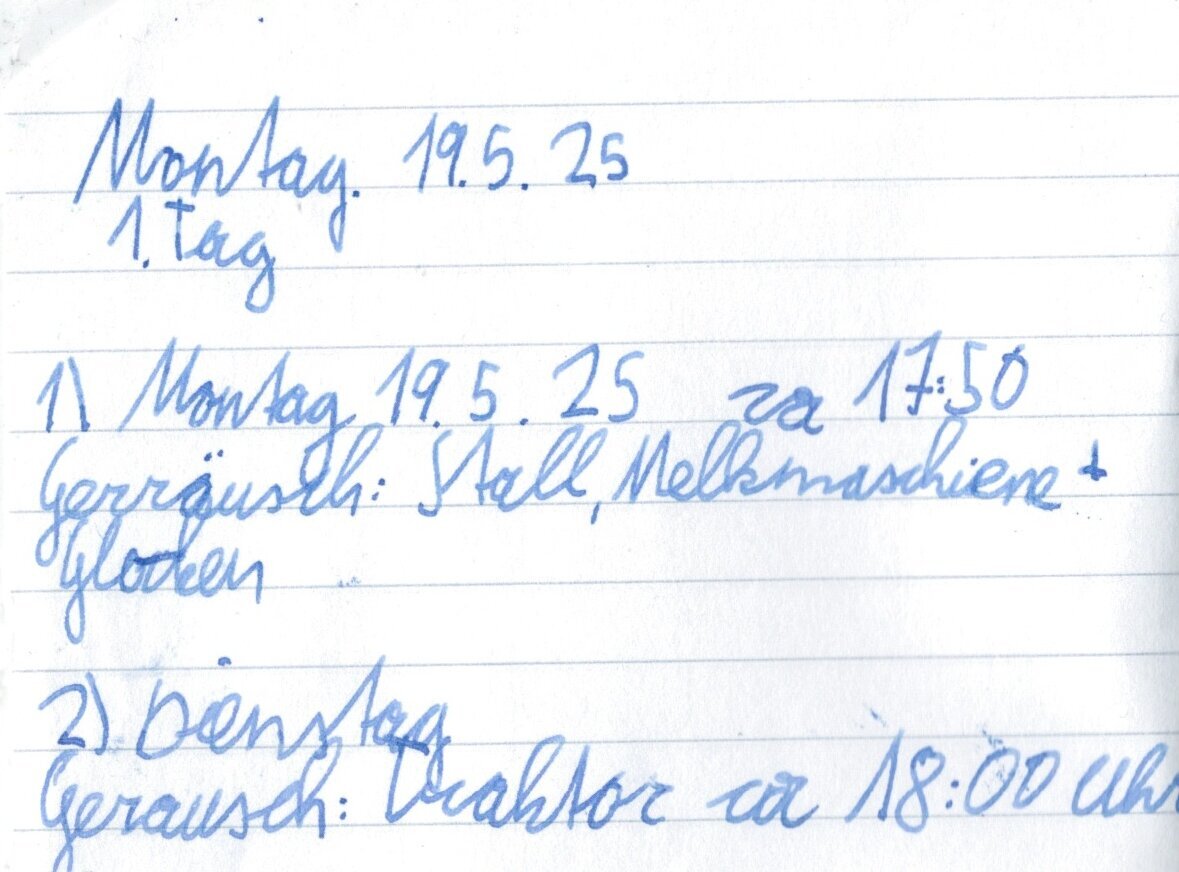 Montag. 19.5.25
1. Tag
1) Montag 19.5.25 ca 17:50
Gerräusch: Stall, Melkmaschiene +
Glocken
2) Dienstag
Gerausch: Traktor ca 18:00 Uhr